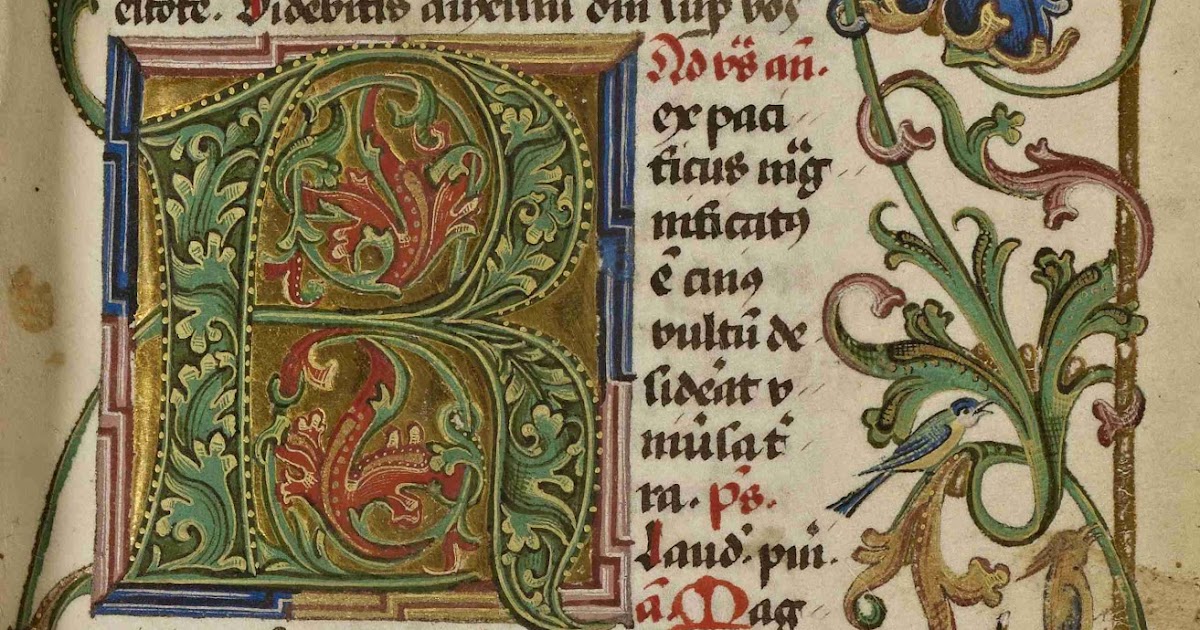 estote. Videbitis auxiliū dn̄i sup vos
Ad vs̄ an̄.
Rex paci
ficus mag
nificatꝰ
ē cuiꝰ
vultū de
siderat v
niūsa t
ra. ps.
Laud. pūi.
an̄ Mag